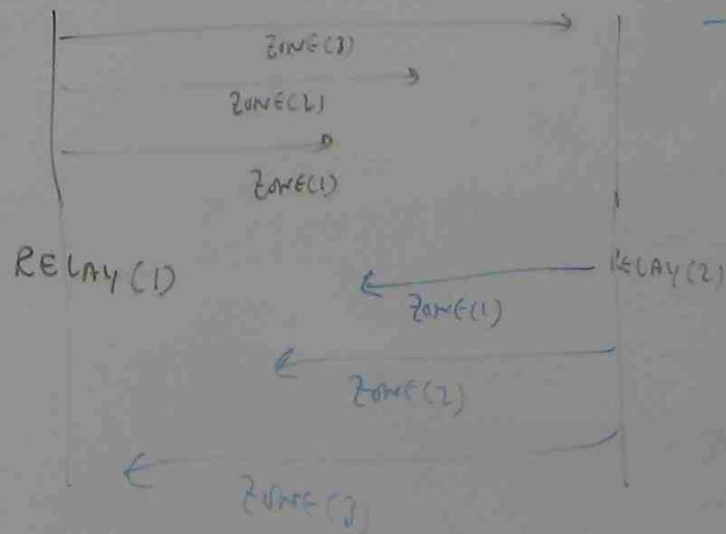 ZONE(3)
ZONE(2)
ZONE(1)
RELAY(1)
RELAY(2)
ZONE(1)
ZONE(2)
ZONE(3